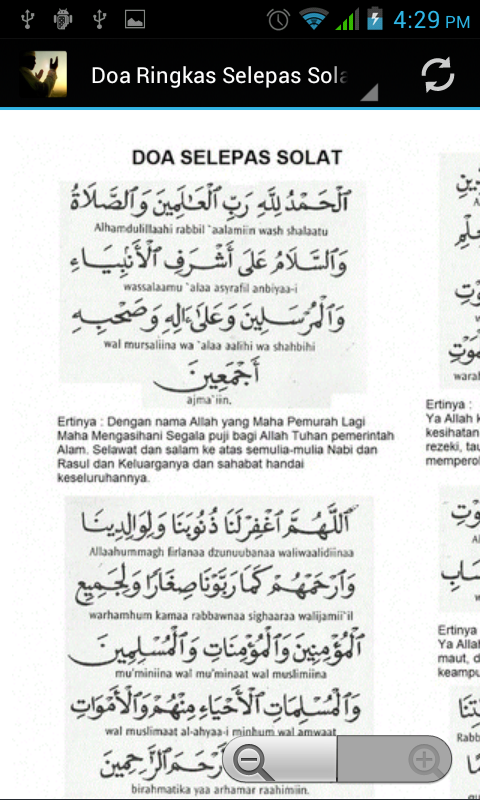 4:29 PM
Doa Ringkas Selepas Sola
DOA SELEPAS SOLAT
اَلْحَمْدُ لِلّٰهِ رَبِّ الْعَالَمِيْنَ وَالصَّلَاةُ
Alhamdulillaahi rabbil `aalamiin wash shalaatu
وَالسَّلَامُ عَلَى أَشْرَفِ الْأَنْبِيَاءِ
wassalaamu `alaa asyrafil anbiyaa-i
وَالْمُرْسَلِيْنَ وَعَلَى اٰلِهِ وَصَحْبِهِ
wal mursaliina wa `alaa aalihi wa shahbihi
أَجْمَعِيْنَ
ajma`iin.
Ertinya : Dengan nama Allah yang Maha Pemurah Lagi
Maha Mengasihani Segala puji bagi Allah Tuhan pemerintah
Alam. Selawat dan salam ke atas semulia-mulia Nabi dan
Rasul dan Keluarganya dan sahabat handai
keseluruhannya.
اَللّٰهُمَّ اغْفِرْلَنَا ذُنُوْبَنَا وَلِوَالِدِيْنَا
Allaahummagh firlanaa dzunuubanaa waliwaalidiinaa
وَارْحَمْهُمْ كَمَا رَبَّوْنَا صِغَارًا وَلِجَمِيْعِ
warhamhum kamaa rabbawnaa sighaaraa walijamii`il
الْمُؤْمِنِيْنَ وَالْمُؤْمِنَاتِ وَالْمُسْلِمِيْنَ
mu'miniina wal mu'minaat wal muslimiina
وَالْمُسْلِمَاتِ الْأَحْيَاءِ مِنْهُمْ وَالْأَمْوَاتِ
wal muslimaat al-ahyaa-i minhum wal amwaat
أَرْحَمَ الرَّاحِمِيْنَ
birahmatika yaa arhamar raahimiin.
Ertinya :
Ya Allah k
kesihatan
rezeki, tau
memperol
Ertinya
Ya Allah
maut, d
keampu